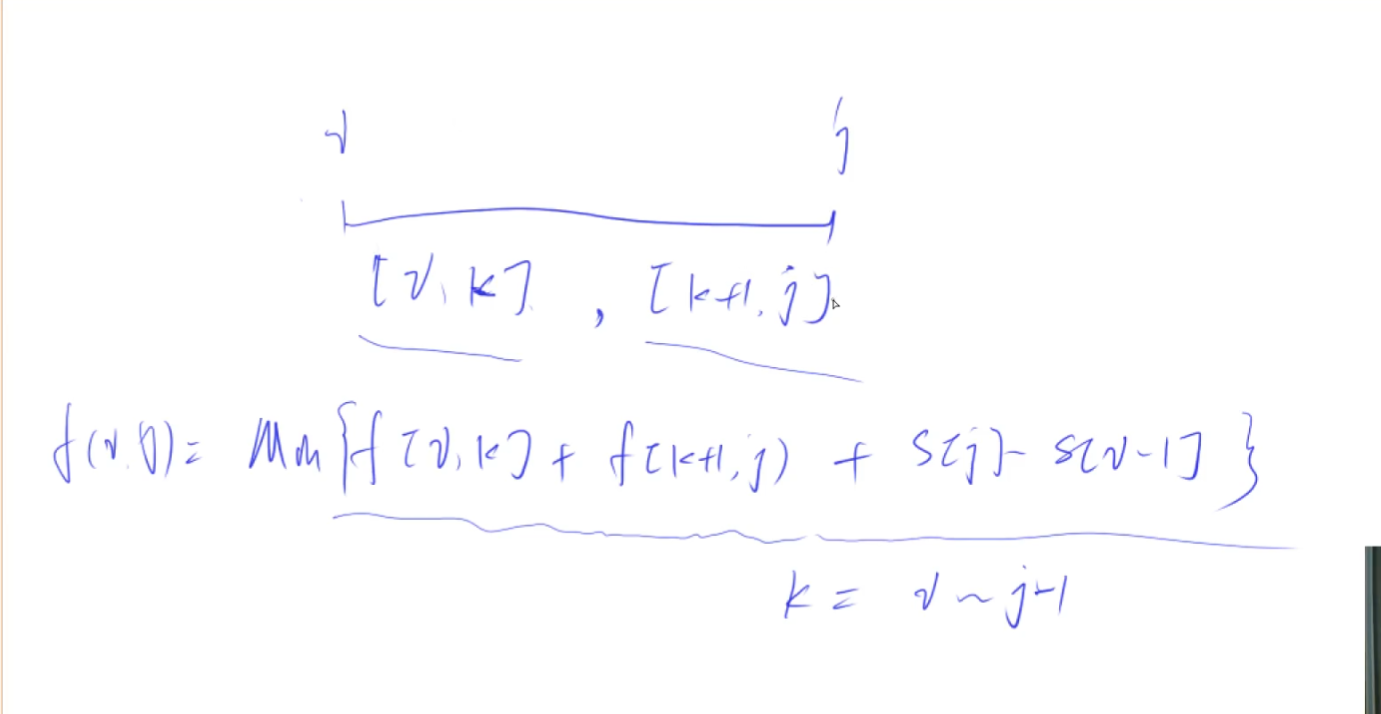 i j
[i, k] , [k+1, j]
f(i, j) = Min{f[i, k] + f[k+1, j) + S[j] - S[i-1] }
k = i ~ j-1